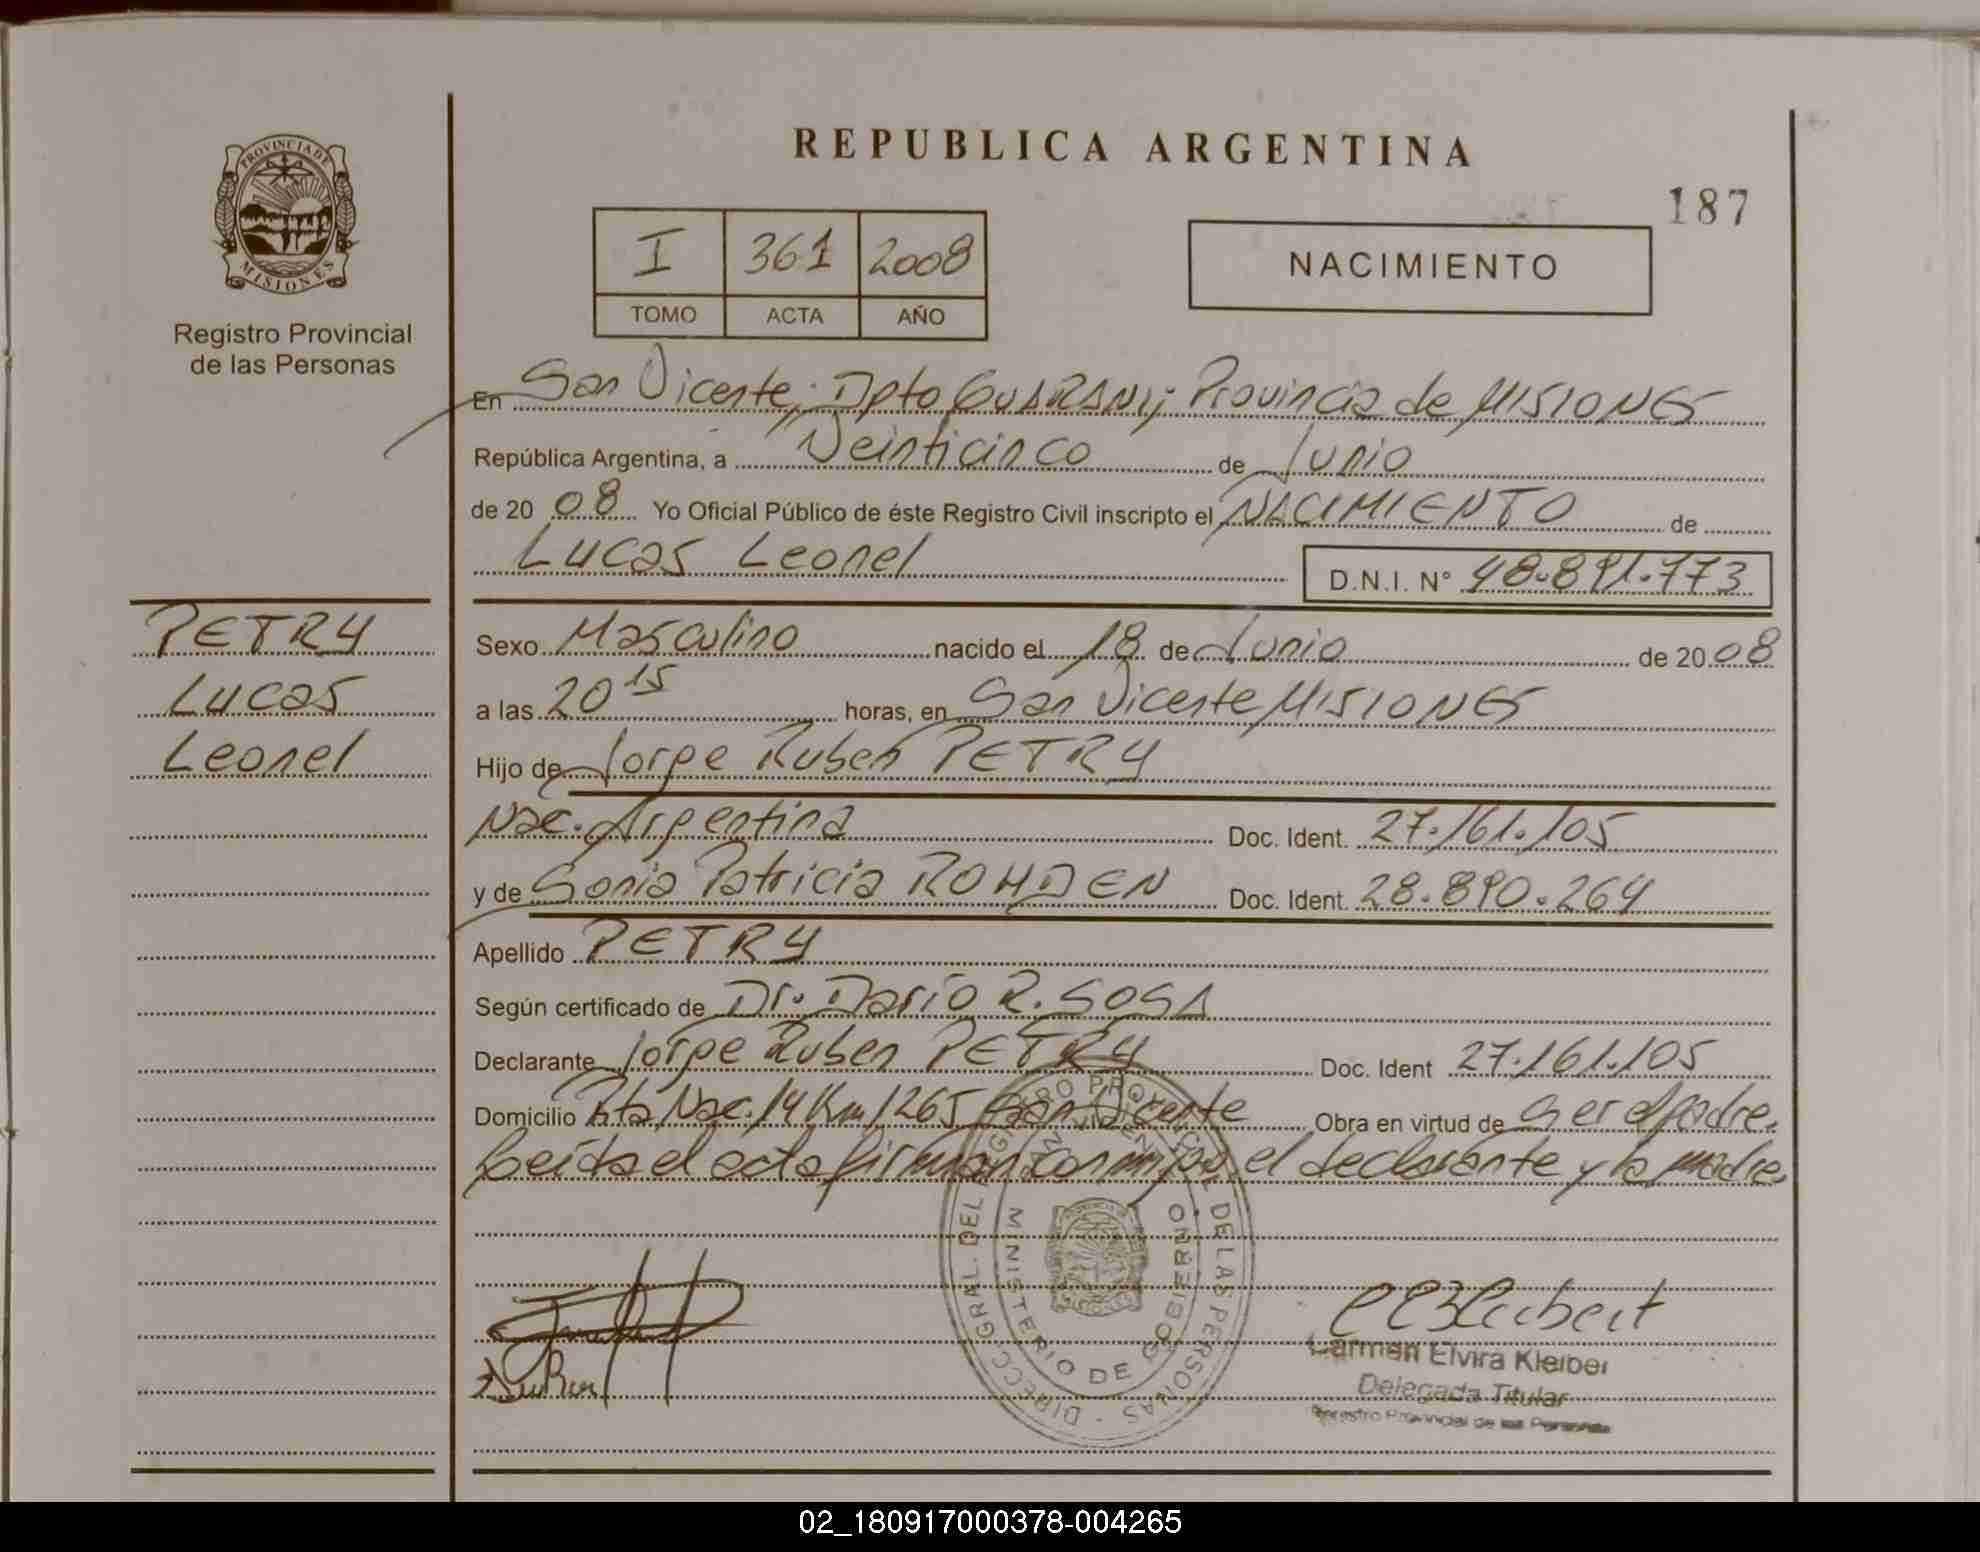 REPUBLICA ARGENTINA
187
PROVINCIA DE
MISIONES
Registro Provincial
de las Personas
I 361 2008
TOMO ACTA AÑO
NACIMIENTO
En San Vicente; Dpto GUARANI; Provincia de MISIONES
República Argentina, a Veinticinco de Junio
de 20 08 Yo Oficial Público de éste Registro Civil inscripto el NACIMIENTO de
Lucas Leonel D.N.I. N° 48.891.773
PETRY
Lucas
Leonel
Sexo Masculino nacido el 18 de Junio de 20 08
a las 20 15 horas, en San Vicente MISIONES
Hijo de Jorge Ruben PETRY
Nac. Argentina Doc. Ident. 27.161.105
y de Sonia Patricia ROHDEN Doc. Ident. 28.890.264
Apellido PETRY
Según certificado de Dr. Dario R. SOSA
Declarante Jorge Ruben PETRY Doc. Ident 27.161.105
Domicilio Rta Nac. 14 Km 1265 San Vicente Obra en virtud de ser el padre.
Leida el acta firman conmigo, el declarante y la madre.
DIRECC. GRAL. DEL REGISTRO PROVINCIAL DE LAS PERSONAS
MINISTERIO DE GOBIERNO
Carmen Elvira Kleiber
Delegada Titular
Registro Provincial de las Personas
02_180917000378-004265